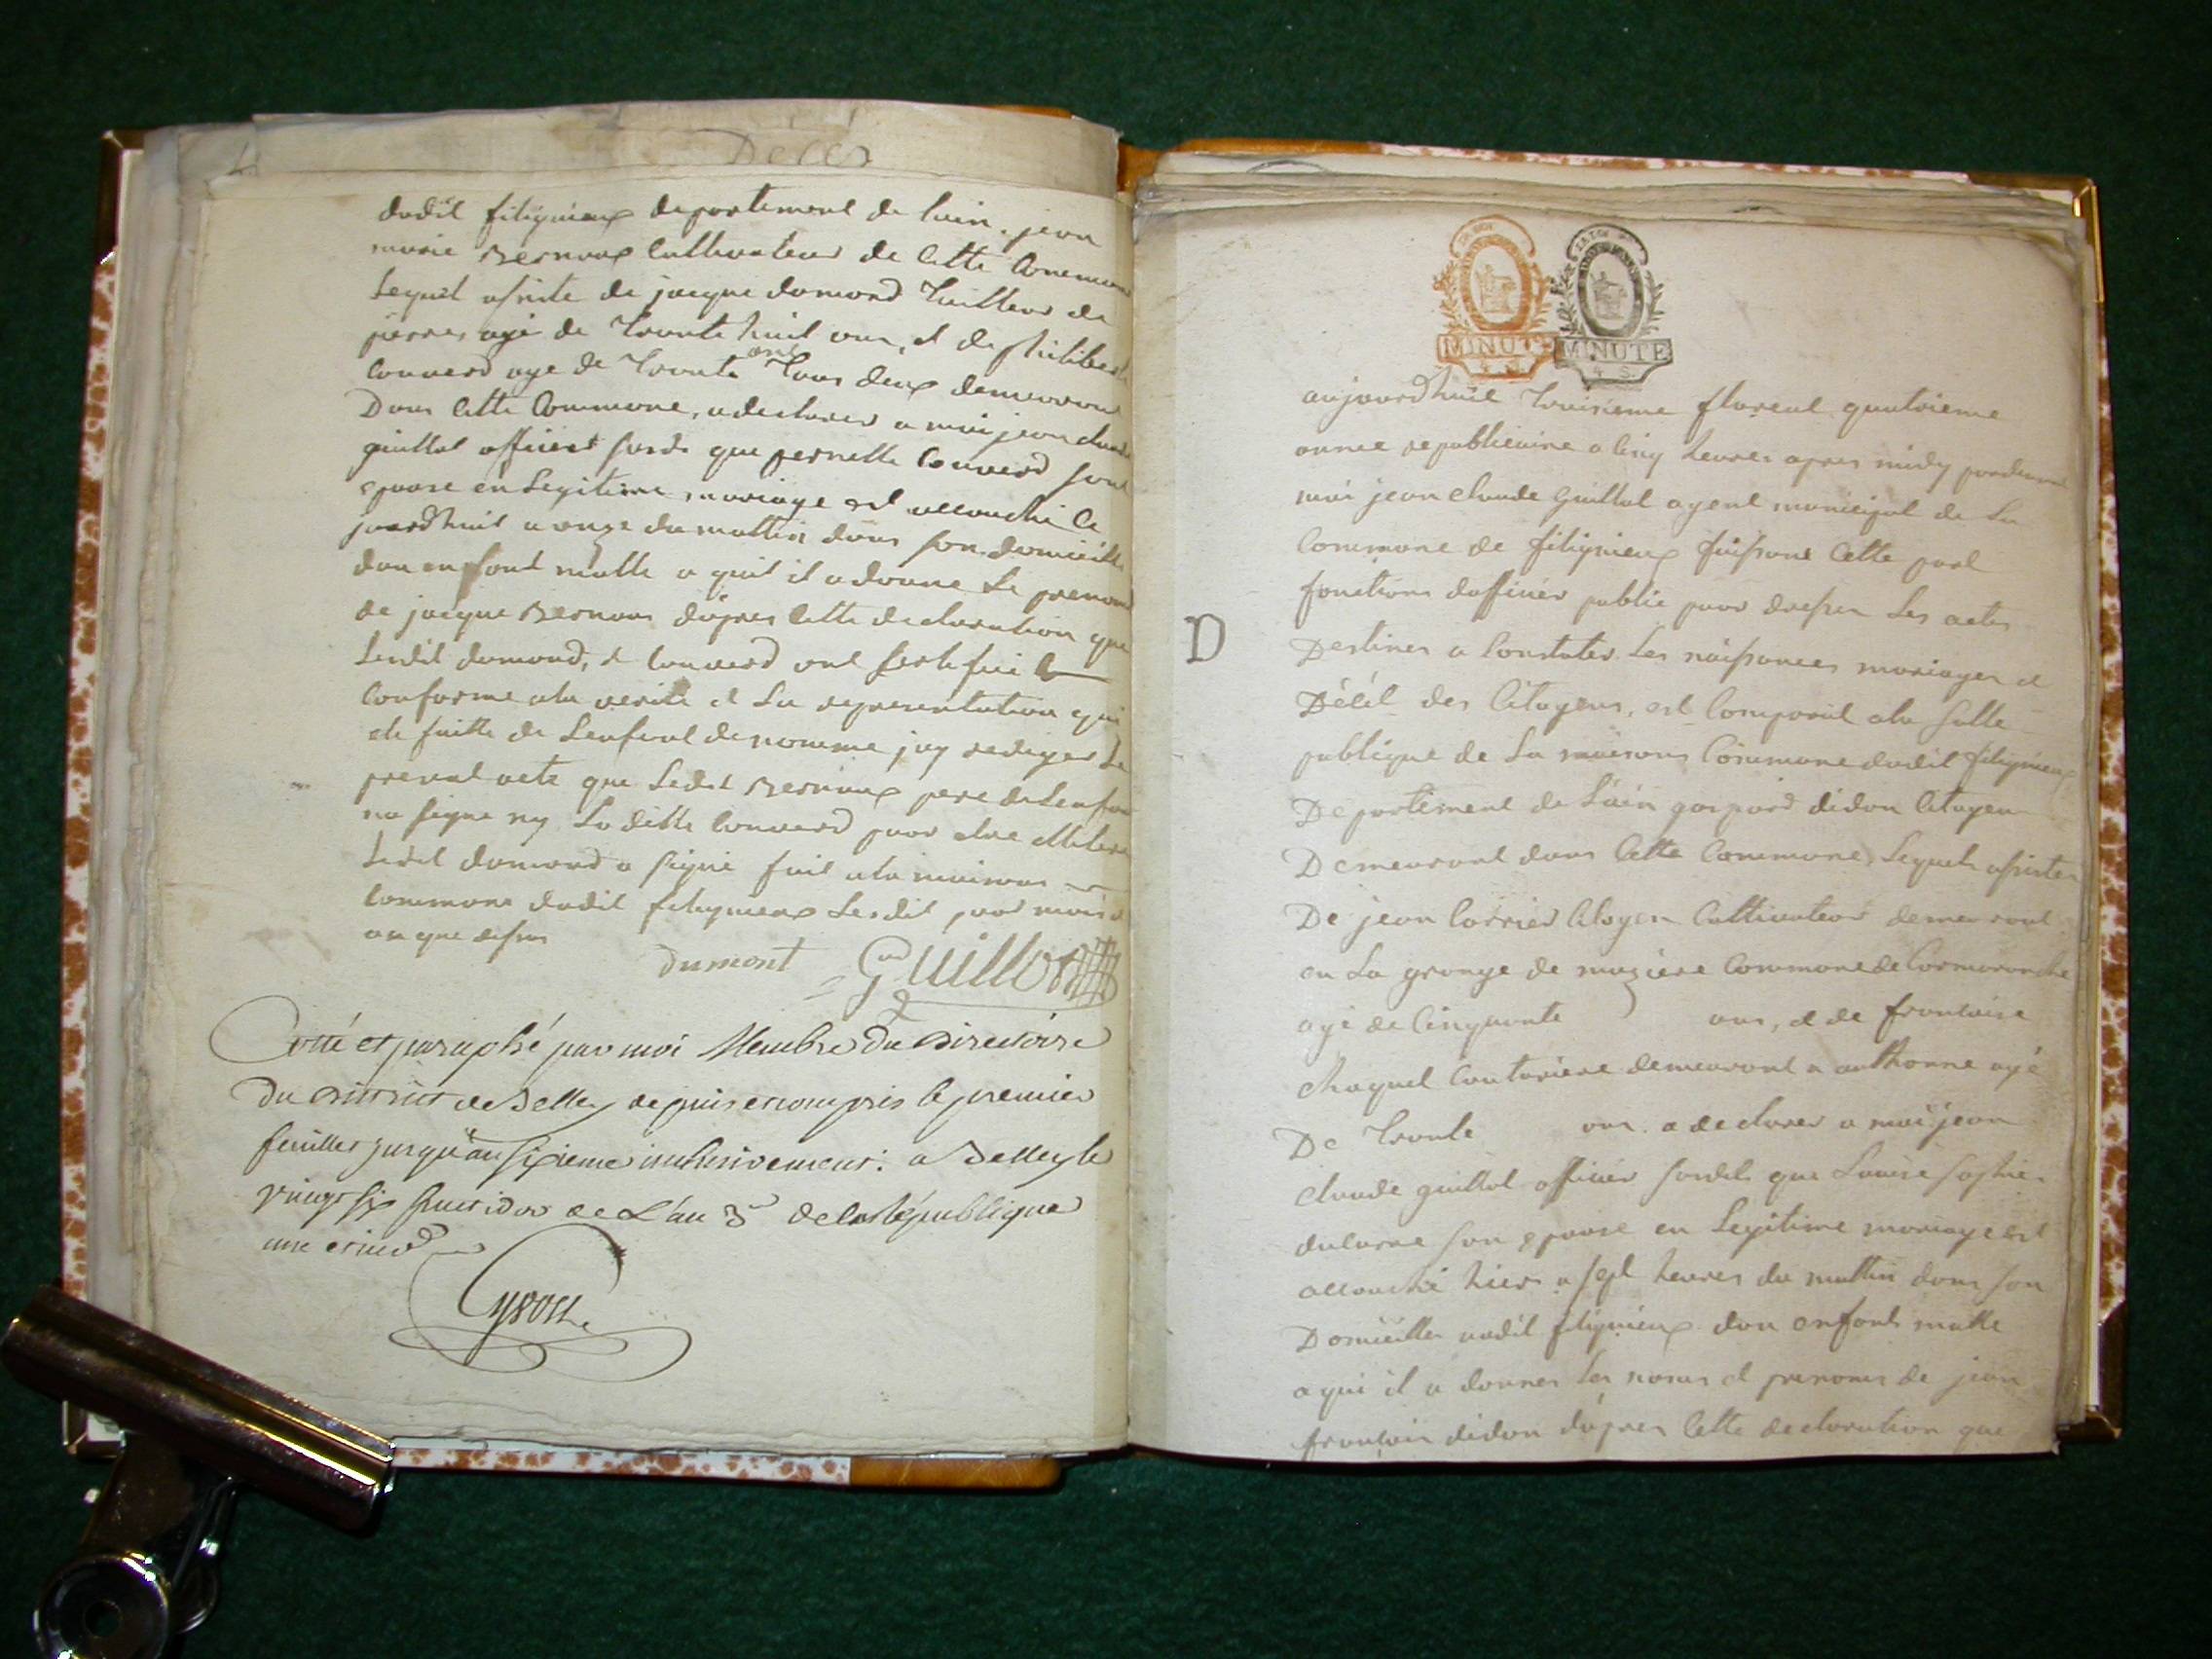 Décès
dudit filignieux departement de lain. jean
marie Bernoux Cultivateur de Cette Commune
Lequel assiste de jacque dumond tailleur de
pierres agé de trente huit ans, et de philibert
Couverd age de trente ans tous deux demeurant
Dans Cette Commune, a declarer a moi jean claude
guillot officier susdi que pernette Couverd son
epouse en Legitime mariage est accouché ce
jourdhuit a onze du mattin dans son domicille
dun enfant malle a quil il a donne Le prenom
de jacque Bernoux dapres Cette declaration que
Lesdit dumond, et Couverd ont sertifier
Conforme ala verite et La representation qui
ete faitte de Lenfant denomme jay rediger Le
presant acte que Ledit Bernoux pere de Lenfant
na signe ny La ditte Couverd pour etre
Ledit dumond a signé fait ala maison
Commune dudit filignieux Lesdit jour mois
an que dessus
dumont Guillot
Cotté et paraphé par moi Membre du Directoire
du District de Belley depuis et compris le premier
feuillet jusqu'au sixieme inclusivement. a Belley le
vingt six fructidor de L'an 3e de la République
une et indle
MINUTE
4 S.
MINUTE
4 S.
aujourdhuit troisieme floreal quatrieme
annee republicaine a Cinq heures apres midy pardevant
moi jean claude Guillot agent municipal de La
Commune de filignieux faisant Cette part
fonctions dofficier public pour dresser Les actes
D
Destines a Constater Les naissances mariages et
Décét des Citoyens, est Comparut ala salle
publique de La maisons Commune dudit filignieux
Departement de Lain gaspard didon Citoyen
Demeurant dans Cette Commune, Lequele assister
De jean Carrier Citoyen Cultivateur demeurant
en La grange de maziere Commune de Cormaranche
agé de Cinquante ans, et de francoise
Chaquet Couturiere demeurant a authonne agé
De trente ans. a declarer a moi jean
claude guillot officier susdit que Louise sophie
dulorne son epouse en Legitime mariage est
accouché hier a sept heures du mattin dans son
Domicille audit filignieux dun enfant malle
a qui il a donner Les noms et prenoms de jean
francois didon dapres Cette declaration que